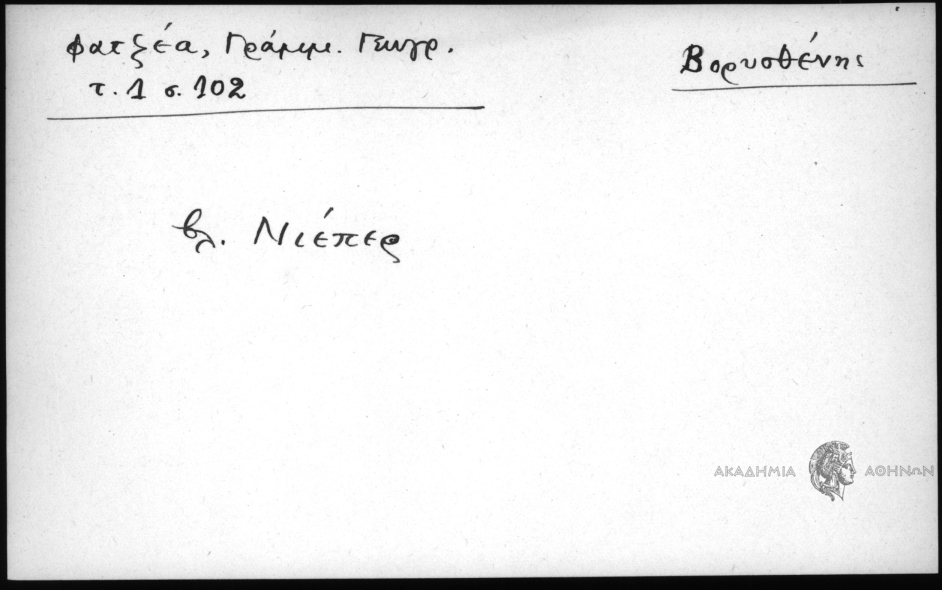 Φατζέα, Γράμμ. Γεωγρ.
τ. 1 σ. 102
Βορυσθένης
βλ. Νιέπερ
ΑΚΑΔΗΜΙΑ ΑΘΗΝΩΝ